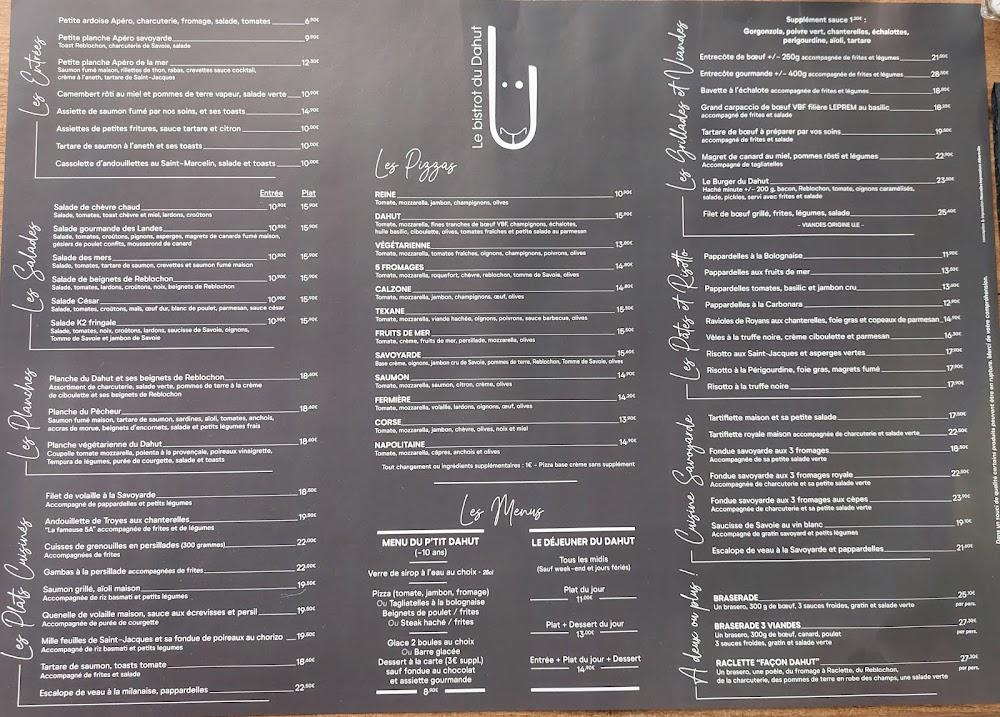 Les Entrées
Petite ardoise Apéro, charcuterie, fromage, salade, tomates 6.90€
Petite planche Apéro savoyarde 9.90€
Toast Reblochon, charcuterie de Savoie, salade
Petite planche Apéro de la mer 12.30€
Saumon fumé maison, rillettes de thon, rabas, crevettes sauce cocktail,
crème à l'aneth, tartare de Saint-Jacques
Camembert rôti au miel et pommes de terre vapeur, salade verte 10.90€
Assiette de saumon fumé par nos soins, et ses toasts 14.90€
Assiettes de petites fritures, sauce tartare et citron 10.00€
Tartare de saumon à l'aneth et ses toasts 10.00€
Cassolette d'andouillettes au Saint-Marcelin, salade et toasts 10.90€
Les Salades
Entrée Plat
Salade de chèvre chaud 10.90€ 15.90€
Salade, tomates, toast chèvre et miel, lardons, croûtons
Salade gourmande des Landes 10.90€ 15.90€
Salade, tomates, croûtons, pignons, asperges, magrets de canards fumé maison,
gésiers de poulet confits, mousserond de canard
Salade des mers 10.90€ 15.90€
Salade, tomates, tartare de saumon, crevettes et saumon fumé maison
Salade de beignets de Reblochon 10.90€ 15.90€
Salade, tomates, lardons, croûtons, noix, beignets de Reblochon
Salade César 10.90€ 15.90€
Salade, tomates, croûtons, maïs, œuf dur, blanc de poulet, parmesan, sauce césar
Salade K2 fringale 10.90€ 15.90€
Salade, tomates, noix, croûtons, lardons, saucisse de Savoie, oignons,
Tomme de Savoie et jambon de Savoie
Les Planches
Planche du Dahut et ses beignets de Reblochon 18.60€
Assortiment de charcuterie, salade verte, pommes de terre à la crème
de ciboulette et ses beignets de Reblochon
Planche du Pêcheur 18.60€
Saumon fumé maison, tartare de saumon, sardines, aïoli, tomates, anchois,
accras de morue, beignets d'encornets, salade et petits légumes frais
Planche végétarienne du Dahut 18.60€
Coupelle tomate mozzarella, polenta à la provençale, poireaux vinaigrette,
Tempura de légumes, purée de courgette, salade et toasts
Les Plats Cuisinés
Filet de volaille à la Savoyarde 18.50€
Accompagné de pappardelles et petits légumes
Andouillette de Troyes aux chanterelles 19.50€
"La fameuse 5A" accompagnée de frites et de légumes
Cuisses de grenouilles en persillades (300 grammes) 22.00€
Accompagnées de frites
Gambas à la persillade accompagnées de frites 22.00€
Saumon grillé, aïoli maison 19.50€
Accompagné de riz basmati et petits légumes
Quenelle de volaille maison, sauce aux écrevisses et persil 19.60€
Accompagné de purée de courgette
Mille feuilles de Saint-Jacques et sa fondue de poireaux au chorizo 19.60€
Accompagné de riz basmati et petits légumes
Tartare de saumon, toasts tomate 18.60€
Accompagné de frites et salade
Escalope de veau à la milanaise, pappardelles 22.50€
Le bistrot du Dahut
Les Pizzas
REINE 10.90€
Tomate, mozzarella, jambon, champignons, olives
DAHUT 15.90€
Tomate, mozzarella, fines tranches de bœuf VBF, champignons, échalotes,
huile basilic, ciboulette, olives, tomates fraîches et petite salade au parmesan
VÉGÉTARIENNE 13.80€
Tomate, mozzarella, tomates fraîches, oignons, champignons, poivrons, olives
5 FROMAGES 14.80€
Tomate, mozzarella, roquefort, chèvre, reblochon, tomme de Savoie, olives
CALZONE 14.80€
Tomate, mozzarella, jambon, champignons, œuf, olives
TEXANE 15.50€
Tomate, mozzarella, viande hachée, oignons, poivrons, sauce barbecue, olives
FRUITS DE MER 15.50€
Tomate, crème, fruits de mer, persillade, mozzarella, olives
SAVOYARDE 15.60€
Base crème, oignons, jambon cru de Savoie, pommes de terre, Reblochon, Tomme de Savoie, olives
SAUMON 14.90€
Tomate, mozzarella, saumon, citron, crème, olives
FERMIÈRE 14.20€
Tomate, mozzarella, volaille, lardons, oignons, œuf, olives
CORSE 13.90€
Tomate, mozzarella, jambon, chèvre, olives, noix et miel
NAPOLITAINE 14.90€
Tomate, mozzarella, câpres, anchois et olives
Tout changement ou ingrédients supplémentaires : 1€ - Pizza base crème sans supplément
Les Menus
MENU DU P'TIT DAHUT
(-10 ans)
Verre de sirop à l'eau au choix - 25cl
Pizza (tomate, jambon, fromage)
Ou Tagliatelles à la bolognaise
Beignets de poulet / frites
Ou Steak haché / frites
Glace 2 boules au choix
Ou Barre glacée
Dessert à la carte (3€ suppl.)
sauf fondue au chocolat
et assiette gourmande
8.90€
LE DÉJEUNER DU DAHUT
Tous les midis
(Sauf week-end et jours fériés)
Plat du jour
11.00€
Plat + Dessert du jour
13.00€
Entrée + Plat du jour + Dessert
14.90€
Les Grillades et Viandes
Supplément sauce 1.20€ :
Gorgonzola, poivre vert, chanterelles, échalottes,
perigourdine, aïoli, tartare
Entrecôte de bœuf +/- 250g accompagnée de frites et légumes 21.50€
Entrecôte gourmande +/- 400g accompagnée de frites et légumes 28.50€
Bavette à l'échalote accompagnée de frites et légumes 18.80€
Grand carpaccio de bœuf VBF filière LEPREM au basilic 18.20€
accompagné de frites et salade
Tartare de bœuf à préparer par vos soins 19.50€
accompagné de frites et salade
Magret de canard au miel, pommes rösti et légumes 22.90€
Accompagné de tagliatelles
Le Burger du Dahut 23.50€
Haché minute +/- 200 g, bacon, Reblochon, tomate, oignons caramélisés,
salade, pickles, servi avec frites et salade
Filet de bœuf grillé, frites, légumes, salade 25.60€
- VIANDES ORIGINE U.E -
Les Pâtes et Risotto
Pappardelles à la Bolognaise 11.90€
Pappardelles aux fruits de mer 13.50€
Pappardelles tomates, basilic et jambon cru 13.60€
Pappardelles à la Carbonara 12.90€
Ravioles de Royans aux chanterelles, foie gras et copeaux de parmesan 14.90€
Vèles à la truffe noire, crème ciboulette et parmesan 16.30€
Risotto aux Saint-Jacques et asperges vertes 17.90€
Risotto à la Périgourdine, foie gras, magrets fumé 17.90€
Risotto à la truffe noire 17.90€
Cuisine Savoyarde
Tartiflette maison et sa petite salade 17.50€
Tartiflette royale maison accompagnée de charcuterie et salade verte 22.50€
Fondue savoyarde aux 3 fromages 18.50€
Accompagnée de sa petite salade verte
Fondue savoyarde aux 3 fromages royale 22.50€
Accompagnée de charcuterie et sa petite salade verte
Fondue savoyarde aux 3 fromages aux cèpes 23.90€
Accompagnée de charcuterie et sa petite salade verte
Saucisse de Savoie au vin blanc 19.10€
Accompagné de gratin savoyard et petits légumes
Escalope de veau à la Savoyarde et pappardelles 21.60€
A deux ou plus !
BRASERADE 25.10€
Un brasero, 300 g de bœuf, 3 sauces froides, gratin et salade verte par pers.
BRASERADE 3 VIANDES 27.30€
Un brasero, 300g de bœuf, canard, poulet par pers.
3 sauces froides, gratin et salade verte
RACLETTE "FAÇON DAHUT" 27.30€
Un brasero, une poële, du fromage à Raclette, du Reblochon, par pers.
de la charcuterie, des pommes de terre en robe des champs, une salade verte
Dans un souci de qualité certains produits peuvent être en rupture. Merci de votre compréhension.